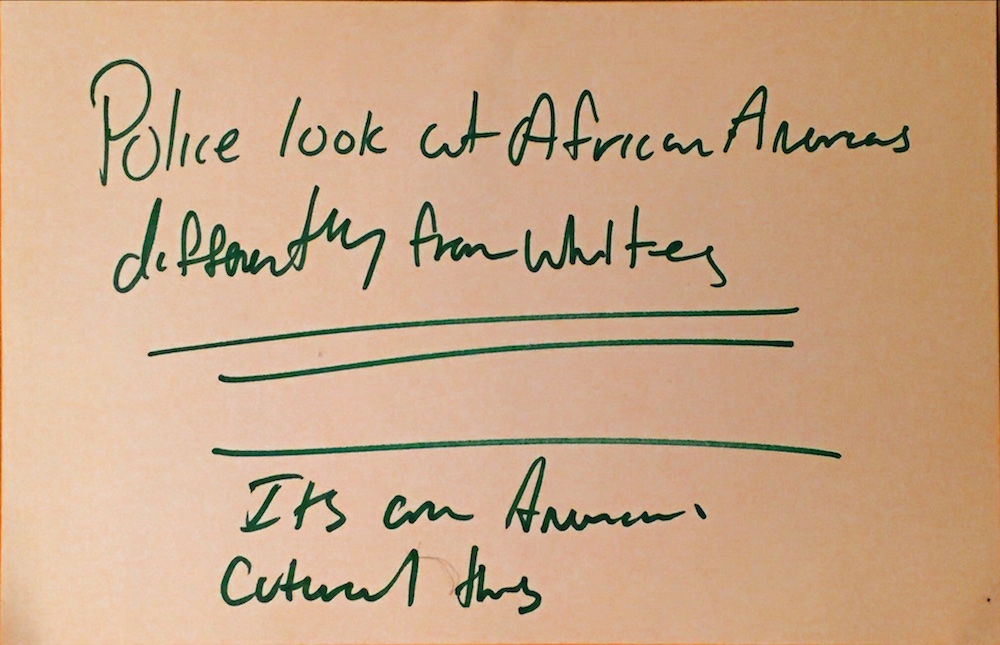 Police look at African Americans
differently from Whites
Its an American
Cultural thing